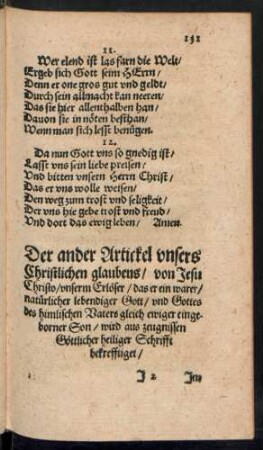 131
11.
Wer elend ist las farn die Welt/
Ergeb sich Gott seim HErrn/
Denn er one gros gut vnd geldt/
Durch sein allmacht kan neeren/
Das sie hier allenthalben han/
Dauon sie in nöten besthan/
Wenn man sich lesst benügen.
12.
Da nun Gott vns so gnedig ist/
Lasst vns sein liebe preisen/
Vnd bitten vnsern Herrn Christ/
Das er vns wolle weisen/
Den weg zum trost vnd seligkeit/
Der vns hie gebe trost vnd freud/
Vnd dort das ewig leben/ Amen.
Der ander Artickel vnsers
Christlichen glaubens/ von Jesu
Christo/ vnserm Erlöser/ das er ein warer/
natürlicher lebendiger Gott/ vnd Gottes
des himlischen Vaters gleich ewiger einge-
borner Son/ wird aus zeugnissen
Göttlicher heiliger Schrifft
bekrefftiget/
J 2